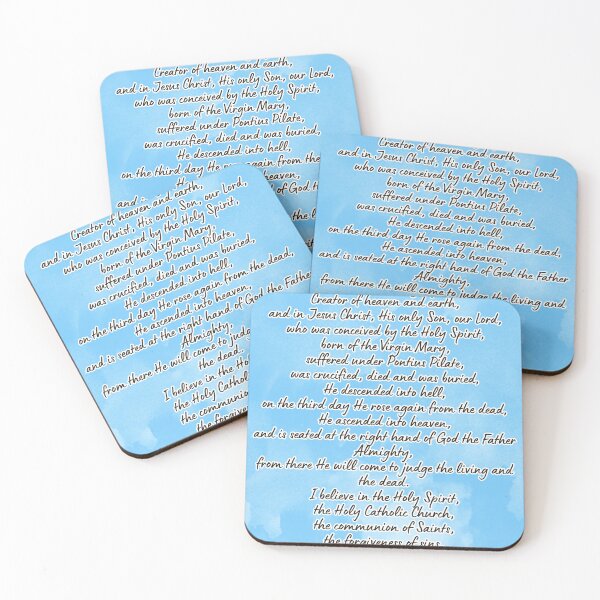 Creator of heaven and earth,
and in Jesus Christ, His only Son, our Lord,
who was conceived by the Holy Spirit,
born of the Virgin Mary,
suffered under Pontius Pilate,
was crucified, died and was buried,
He descended into hell,
on the third day He rose again from the
heaven,
and
of God the
Creator of heaven and earth,
and in Jesus Christ, His only Son, our Lord,
who was conceived by the Holy Spirit,
born of the Virgin Mary,
suffered under Pontius Pilate,
was crucified, died and was buried,
He descended into hell,
on the third day He rose again from the dead,
He ascended into heaven,
and is seated at the right hand of God the Father
Almighty,
from there He will come to judge the living and
Creator of heaven and earth,
and in Jesus Christ, His only Son, our Lord,
who was conceived by the Holy Spirit,
born of the Virgin Mary,
suffered under Pontius Pilate,
was crucified, died and was buried,
He descended into hell,
on the third day He rose again from the dead,
He ascended into heaven,
and is seated at the right hand of God the Father
Almighty,
from there He will come to judge
the dead.
I believe in the
the Holy Catholic
the communion
the forgiveness
Creator of heaven and earth,
and in Jesus Christ, His only Son, our Lord,
who was conceived by the Holy Spirit,
born of the Virgin Mary,
suffered under Pontius Pilate,
was crucified, died and was buried,
He descended into hell,
on the third day He rose again from the dead,
He ascended into heaven,
and is seated at the right hand of God the Father
Almighty,
from there He will come to judge the living and
the dead.
I believe in the Holy Spirit,
the Holy Catholic Church,
the communion of Saints,
the forgiveness of sins